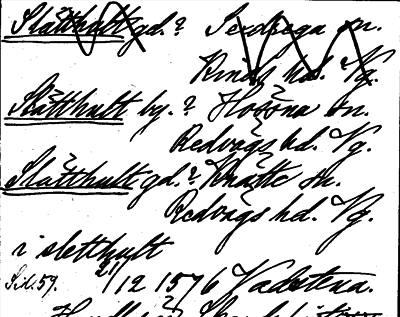 Slätthult gd.? Svedvega sn.
Kinds hd. Vg.
Slätthult by.? Hössna sn.
Redvägs hd. Vg.
Slätthult gd.? Knätte sn.
Redvägs hd. Vg.
i sletthult
Sid. 59. 21/12 1576 Vadstena.